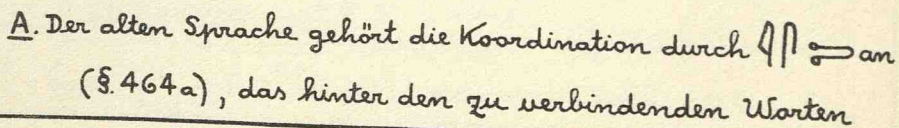 A. Der alten Sprache gehört die Koordination durch 𓇋𓋴𓍿 an
(§. 464a), das hinter den zu verbindenden Worten